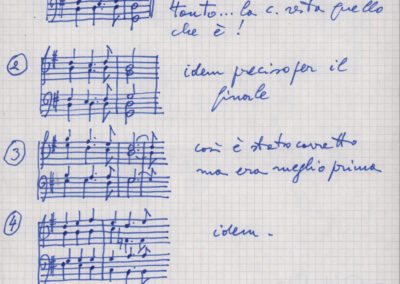 tanto... la c. resta quello
che è!
② idem preciso per il
finale
③ così è stato corretto
ma era meglio prima
④ idem.